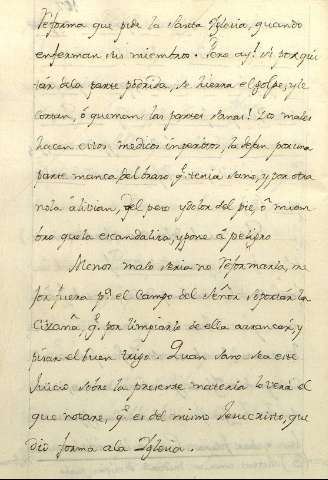 Reforma que pide la Santa Yglesia, quando
enferman sus miembros. Pero ay! si por qui
tár dela parte podrida, se hierra el golpe, y le
cortan, ó queman las partes sanas! Dos males
hacen estos medicos inpéritos, la dejan por una
parte manca del brazo, q.e tenia sano, y por otra
no la alivian, del peso y dolor del pie, ó miem
bro que la escandaliza, y pone á peligro
Menos malo seria no reformarla, me
jor fuera p.a el Campo del Señor soportár la
Cizaña, q.e por limpiarlo de ella arrancar, y
pisar el buen trigo. Quan sano sea este
Juicio sobre la presente materia lo verá el
que notare, q.e es del mismo Jesucristo, que
dió forma ala Yglesia.